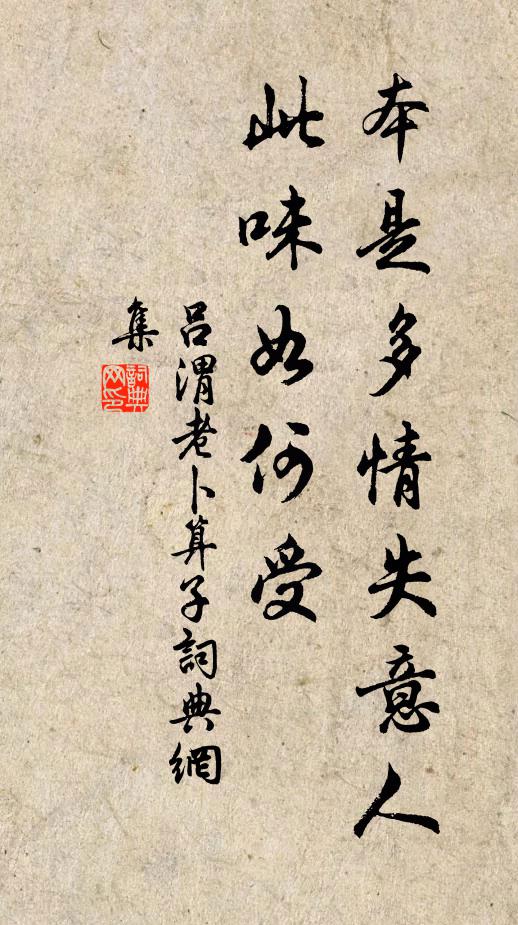 本是多情失意人
此味如何受
呂渭老卜算子詞典網
集
詞典
网印